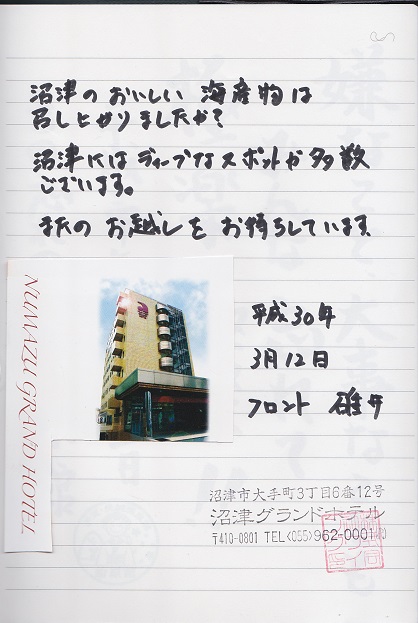 沼津の おいしい 海産物は
召し上がりましたか?
沼津には ディープなスポットが多数
ございます。
またの お越しを お待ちしています。
NUMAZU GRAND HOTEL
平成30年
3月12日
フロント 碓井
沼津市大手町3丁目6番12号
沼津グランドホテル
〒410-0801 TEL<055>962-0001㈹